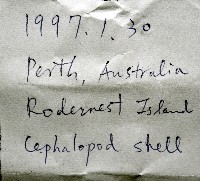 1997.1.30
Perth, Australia
Rodernest Island
Cephalopod shell